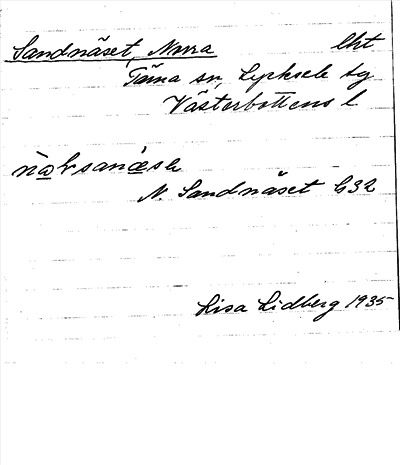 Sandnäset, Norra lht
Tärna sn, Lycksele tg
Västerbottens l
N. Sandnäset G32
Lisa Lidberg 1935